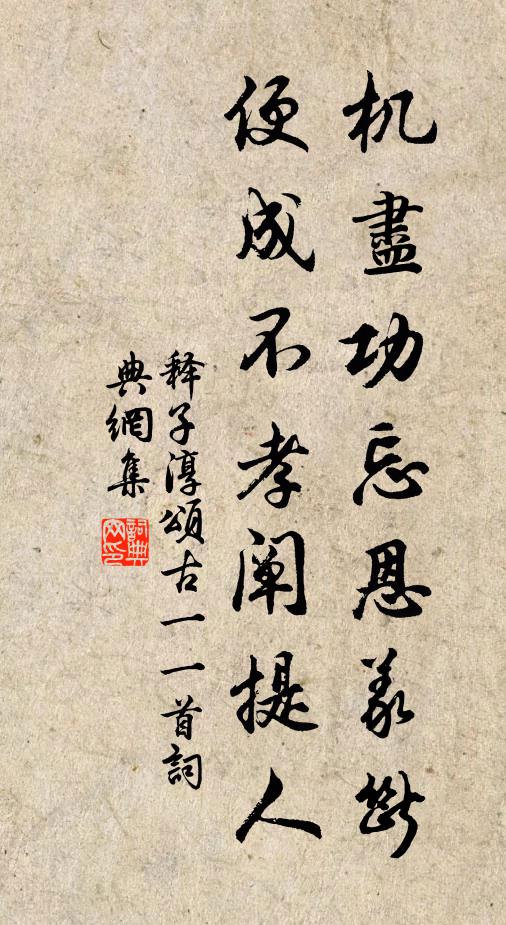 机盡功忘恩義斷
便成不孝阐提人
释子淳頌古一一首詞
典網集
詞典網印